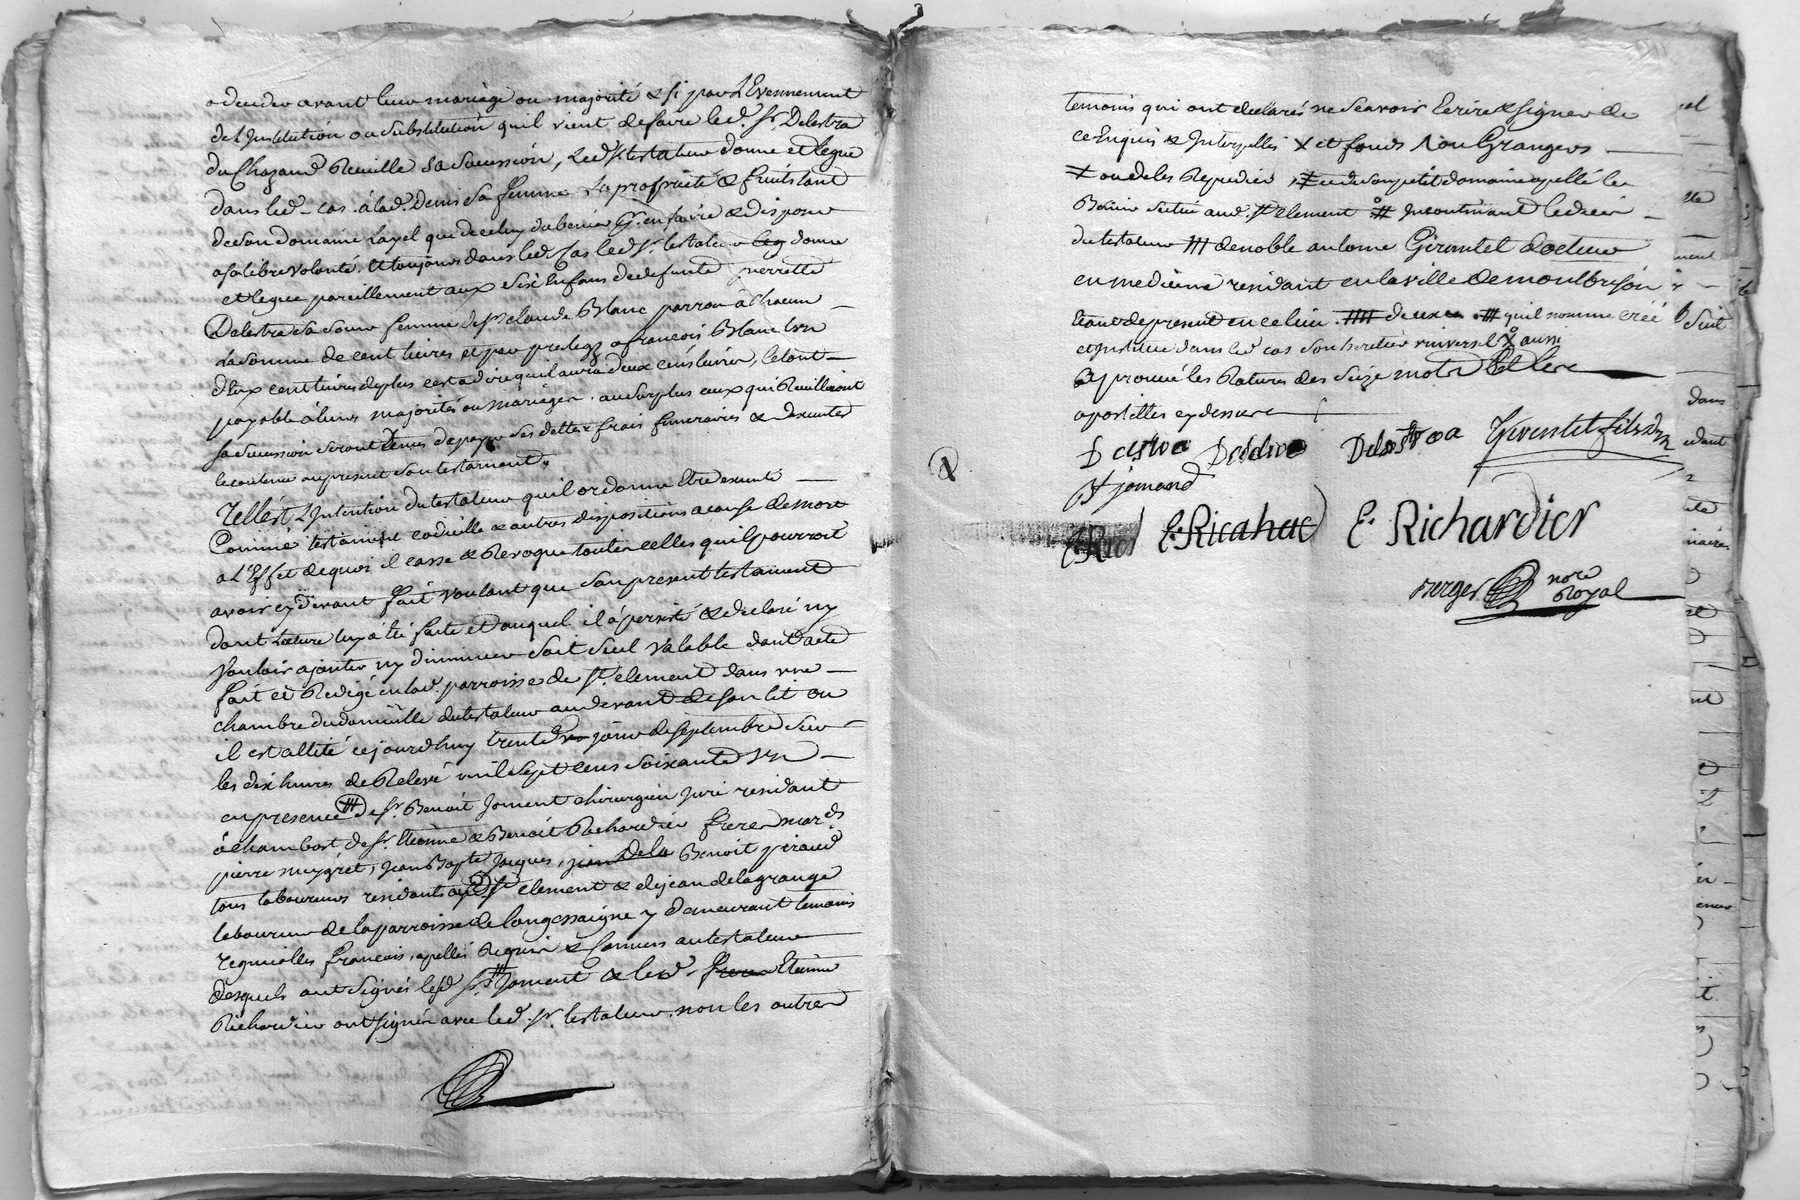 a deceder avant leur mariage ou majorité & si par L'Evennement
de L'Institution ou substitution qu'il vient de faire led. Sr. Delestra
du Chazaud Recuille sa succession, Led. Sr testateur donne et legue
dans led. cas à lad. Denis sa femme La proprieté & fruits tant
de son domaine Layel que de celuy du benier pr. en faire & disposer
a sa libre volonté. Et toujours dans led. Cas led. Sr. testateur leg donne
et legue pareillement aux six Enfans de defunte pierrette
Delestra sa soeur femme de Sr claude Blanc parrou à chacun
La somme de cent livres et par prelegs a francois Blanc l'un
d'Eux cent livres de plus c'est a dire qu'il aura deux cens livres, le tout
payable à leurs majorités ou mariages. au surplus ceux qui Recuilliront
sa succession seront tenus de payer ses dettes & frais funeraires & d'executer
le contenu au present son testament.
Telle est L'Intention du testateur qu'il ordonne Etre executé
Comme testament codicille & autres dispositions a cause de mort
a L'Effet de quoi il casse & Revoque toutes celles qu'il pourroit
avoir cy devant fait voulant que son present testament
dont Lecture luy a été faite et auquel il à persisté & declaré ny
vouloir ajouter ny diminuer soit seul valable dont acte
fait et Redigé en lad. parroisse de St. clement dans une
chambre du domicille du testateur au devant de son lit ou
il est allité ce jourd'huy trente jour de septembre sur
les dix heures de Relevé mil sept cens soixante un
en presence # de Sr. Benoit Joment chirurgien juré residant
à chambost de Sr. Etienne & Benoit Richardier freres mards
pierre meygret, jean Bapte Jacques, jean Dela Benoit giraud
tous laboureurs residants aud. St clement & de jean delagrange
laboureur de la parroisse de longessaigne y demeurant temoins
requis françois, apellés Requis & Connus au testateur
desquels ont signés led. Sr. Joment & led. freres Etienne
Richardier ont signés avec led. Sr. testateur. non les autres
temoins qui ont declarés ne scavoir Ecrire & signer de
ce Enquis & Interpellés X et fonds Grangers
≠ ou de les Repudier, ≠ et de son petit domaine apellé le
Benier scitué aud. St clement # Incontinant le deces
du testateur ### de noble antoine Girontet docteur
en medecine residant en la ville de montbrison
etant de present en ce lieu. deux # qu'il nomme créé
et institue dans led. cas son heritier universel X aussi
aprouvé les Ratures des seize mots & les
apostilles cy dessus
Delestra Delestra Delestra Girontet fils Dm
Bt jomand
E. Rich E. Ricahac E. Richardier
verger nore
Royal